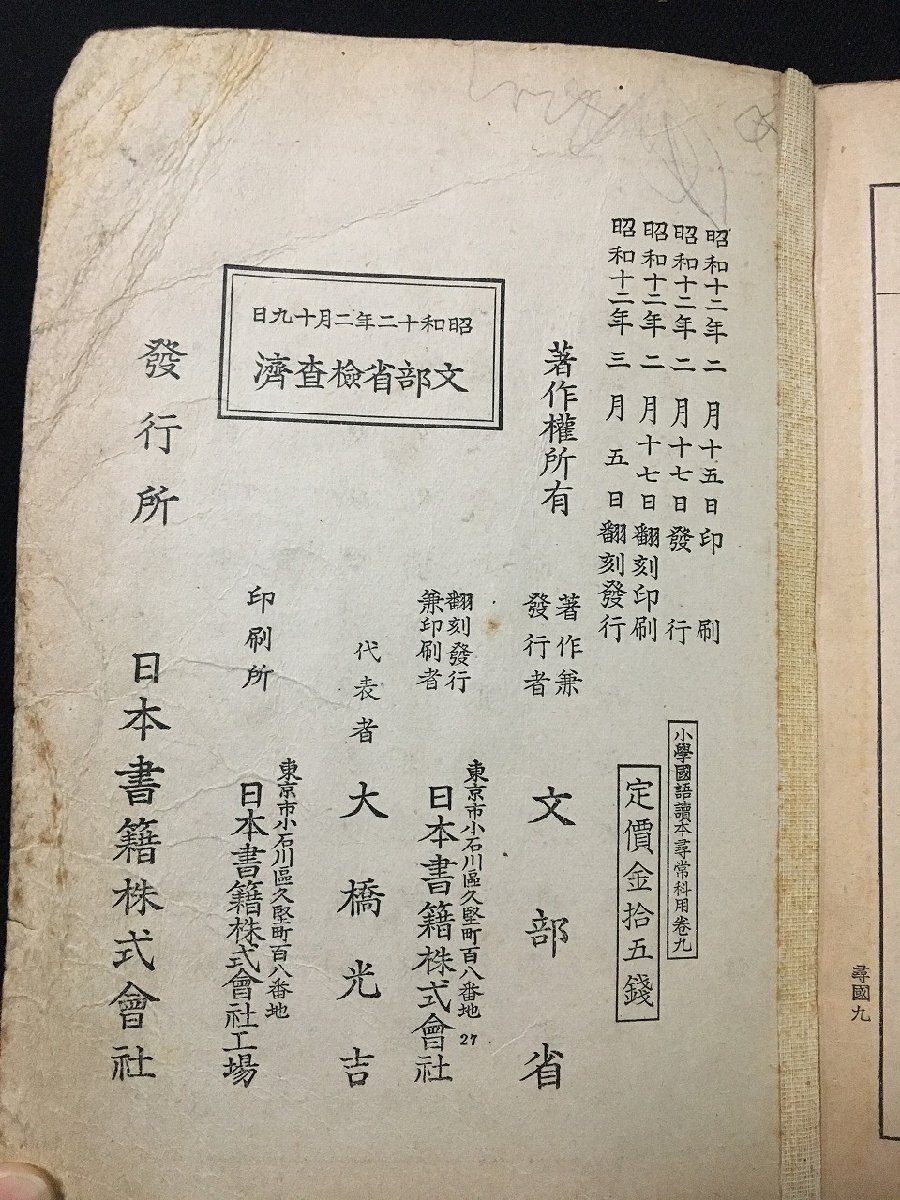 昭和十二年二月十五日印刷
昭和十二年二月十七日發行
昭和十二年二月十七日翻刻印刷
昭和十二年三月五日翻刻發行
小學國語讀本尋常科用卷九
定價金拾五錢
著作權所有
著作兼
發行者
文部省
翻刻發行
兼印刷者
東京市小石川區久堅町百八番地
日本書籍株式會社
27
代表者
大橋光吉
昭和十二年二月十九日
文部省檢査濟
印刷所
東京市小石川區久堅町百八番地
日本書籍株式會社工場
發行所
日本書籍株式會社
尋國九